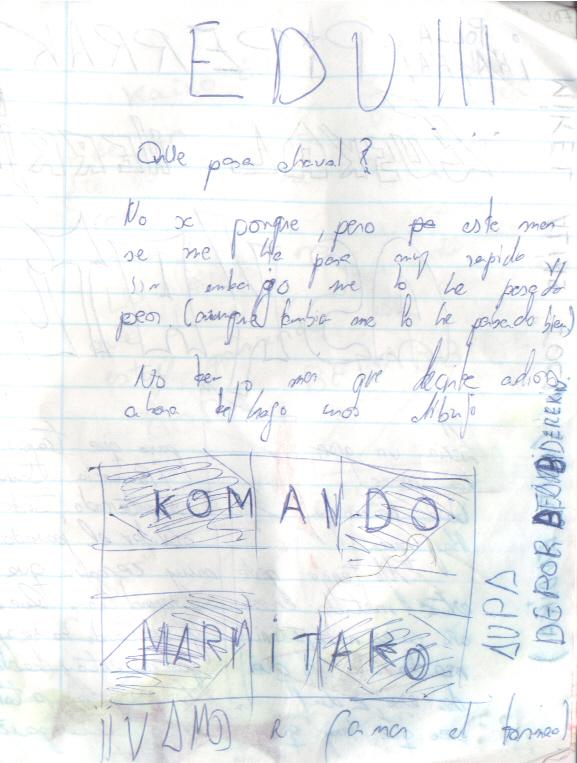 EDU!!!
Que pasa chaval?
No se porque, pero este mes
se me ha pasa muy rapido
sin embargo me lo he pasado
peor. (aunque tambia me lo he pasado bien)
No tengo mas que decirte adios y
ahora te hago unos dibujo
KOMANDO
MARMiTAKO
¡¡VAMOS a ganar el torneo)
AUPA
(DEPOR